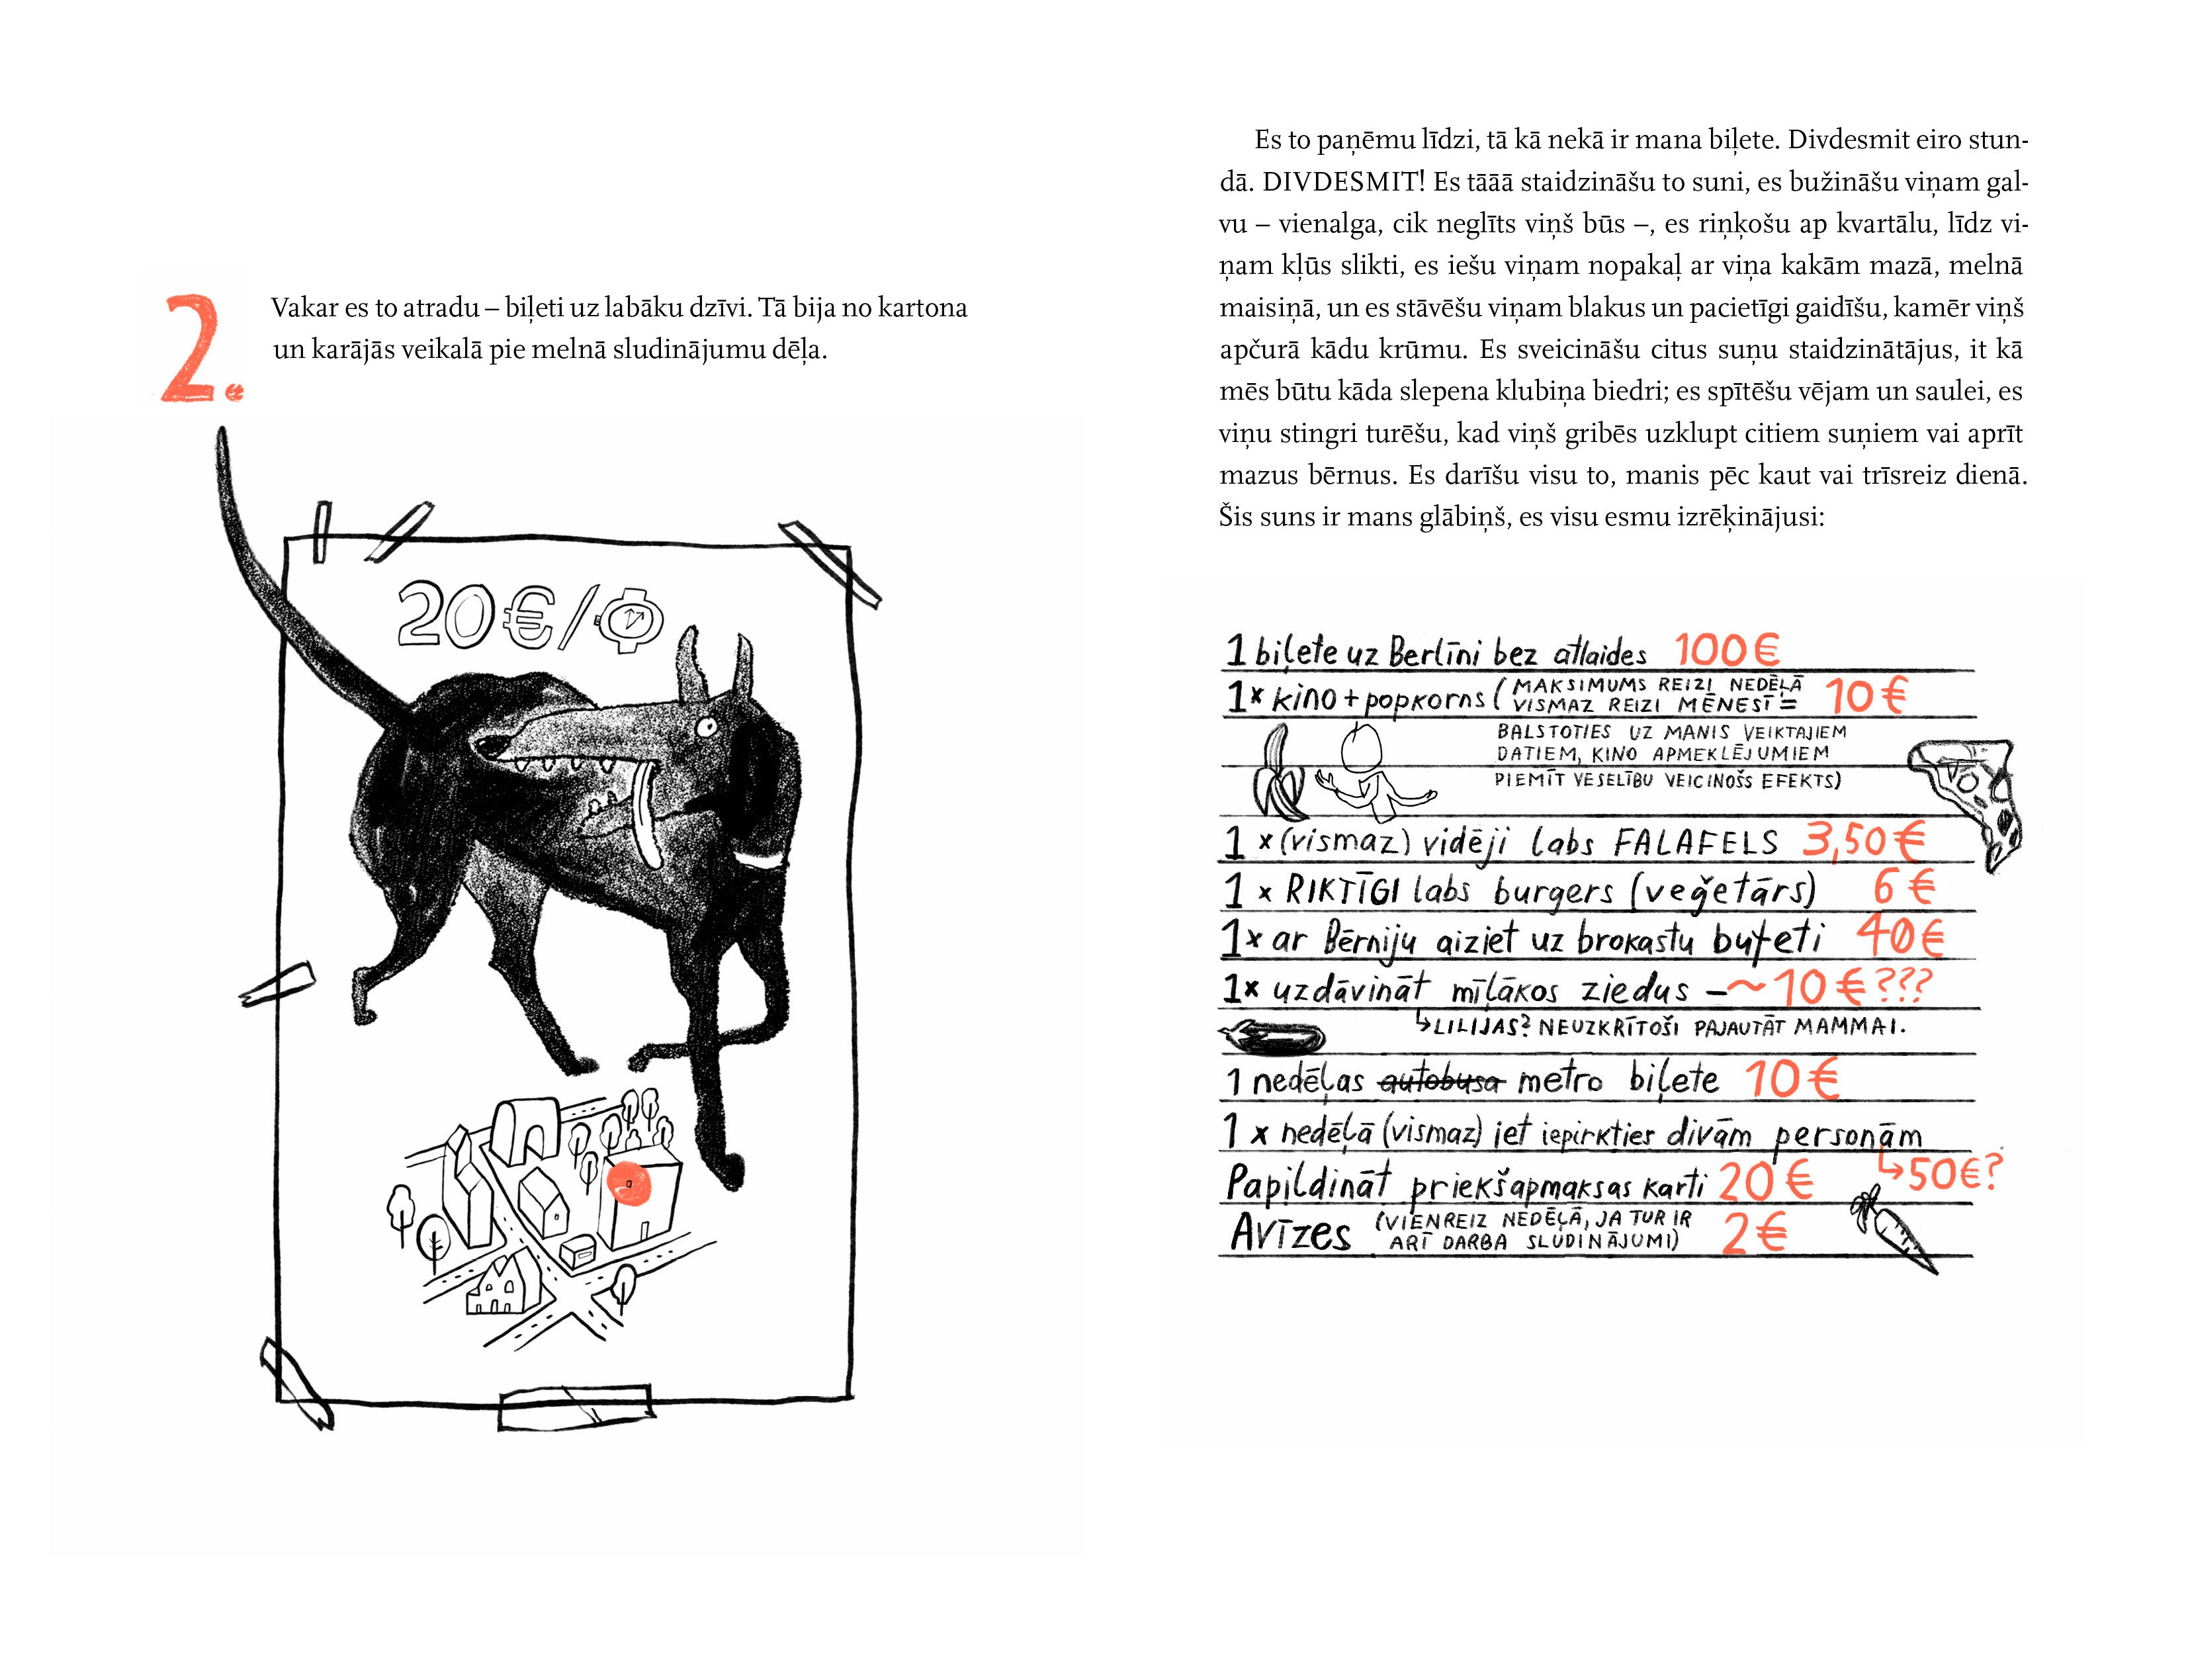 2.
Vakar es to atradu – biļeti uz labāku dzīvi. Tā bija no kartona
un karājās veikalā pie melnā sludinājumu dēļa.
20€/
Es to paņēmu līdzi, tā kā nekā ir mana biļete. Divdesmit eiro stun-
dā. DIVDESMIT! Es tāāā staidzināšu to suni, es bužināšu viņam gal-
vu – vienalga, cik neglīts viņš būs –, es riņķošu ap kvartālu, līdz vi-
ņam kļūs slikti, es iešu viņam nopakaļ ar viņa kakām mazā, melnā
maisiņā, un es stāvēšu viņam blakus un pacietīgi gaidīšu, kamēr viņš
apčurā kādu krūmu. Es sveicināšu citus suņu staidzinātājus, it kā
mēs būtu kāda slepena klubiņa biedri; es spītēšu vējam un saulei, es
viņu stingri turēšu, kad viņš gribēs uzklupt citiem suņiem vai aprīt
mazus bērnus. Es darīšu visu to, manis pēc kaut vai trīsreiz dienā.
Šis suns ir mans glābiņš, es visu esmu izrēķinājusi:
1 biļete uz Berlīni bez atlaides 100€
1x kino + popkorns (MAKSIMUMS REIZI NEDĒĻĀ
VISMAZ REIZI MĒNESĪ = 10€
BALSTOTIES UZ MANIS VEIKTAJIEM
DATIEM, KINO APMEKLĒJUMIEM
PIEMĪT VESELĪBU VEICINOŠS EFEKTS)
1 x (vismaz) vidēji labs FALAFELS 3,50€
1 x RIKTĪGI labs burgers (veģetārs) 6€
1x ar Bērniju aiziet uz brokastu bufeti 40€
1x uzdāvināt mīļākos ziedus – ~10€???
↳LILIJAS? NEUZKRĪTOŠI PAJAUTĀT MAMMAI.
1 nedēļas autobusa metro biļete 10€
1 x nedēļā (vismaz) iet iepirkties divām personām
↳50€?
Papildināt priekšapmaksas karti 20€
Avīzes (VIENREIZ NEDĒĻĀ, JA TUR IR
ARĪ DARBA SLUDINĀJUMI) 2€